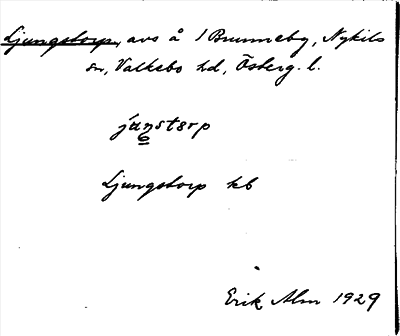 Ljungstorp, avs å 1 Brunneby, Nykils
sn, Valkebo hd, Österg. l.
jánstorp
Ljungstorp kb
Erik Alm 1929